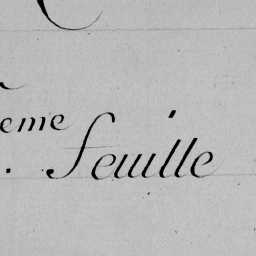 eme
. feuille